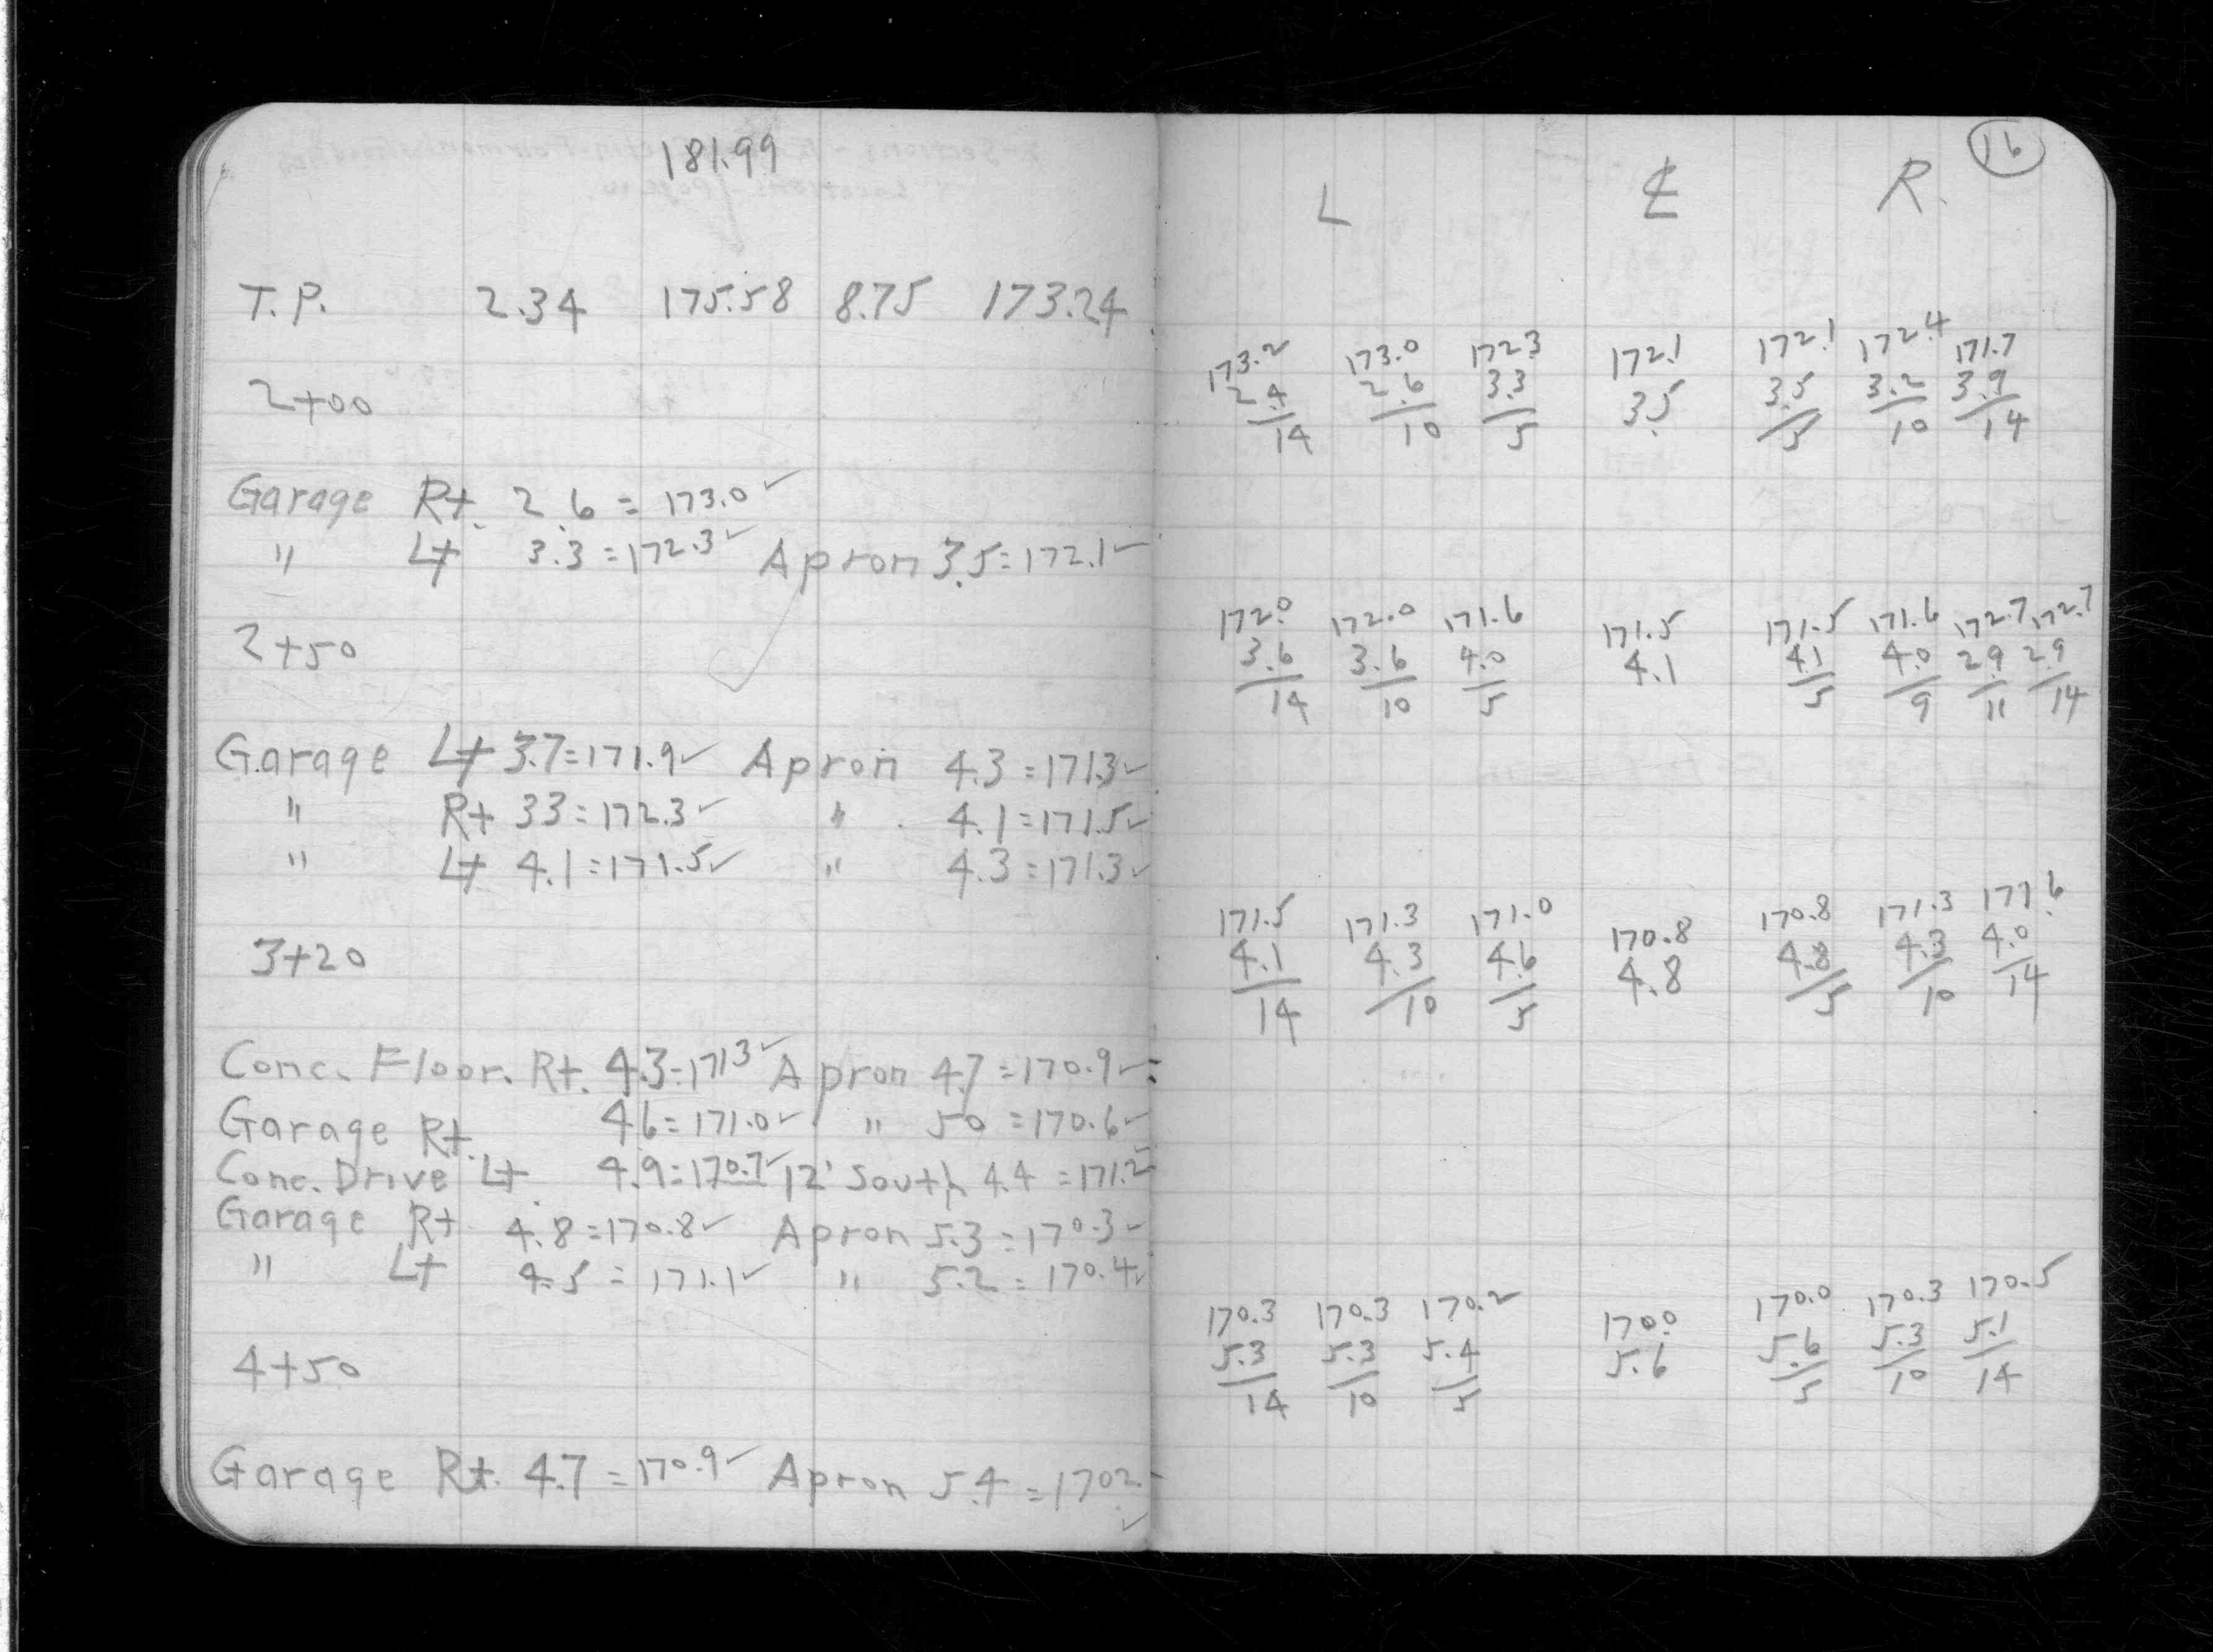 181.99
T.P. 2.34 175.58 8.75 173.24
2+00
Garage Rt. 2.6 = 173.0 ✓
" Lt 3.3 = 172.3 ✓ Apron 3.5 = 172.1 ✓
2+50
Garage Lt 3.7 = 171.9 ✓ Apron 4.3 = 171.3 ✓
" Rt 33 = 172.3 ✓ " 4.1 = 171.5 ✓
" Lt 4.1 = 171.5 ✓ " 4.3 = 171.3 ✓
3+20
Conc. Floor. Rt. 4.3 = 1713 ✓ Apron 4.7 = 170.9 ✓
Garage Rt. 46 = 171.0 ✓ " 50 = 170.6 ✓
Conc. Drive Lt. 4.9 = 170.7 ✓ 12' South 4.4 = 171.2
Garage Rt 4.8 = 170.8 ✓ Apron 5.3 = 170.3 ✓
" Lt 4.5 = 171.1 ✓ " 5.2 = 170.4 ✓
4+50
Garage Rt. 4.7 = 170.9 ✓ Apron 5.4 = 1702 ✓
16
L ℄ R.
173.2 173.0 172.3 172.1 172.1 172.4 171.7
2.4 2.6 3.3 3.5 3.5 3.2 3.9
14 10 5 5 10 14
172.0 172.0 171.6 171.5 171.5 171.6 172.7 172.7
3.6 3.6 4.0 4.1 4.1 4.0 2.9 2.9
14 10 5 5 9 11 14
171.5 171.3 171.0 170.8 170.8 171.3 171.6
4.1 4.3 4.6 4.8 4.8 4.3 4.0
14 10 5 5 10 14
170.3 170.3 170.2 170.0 170.0 170.3 170.5
5.3 5.3 5.4 5.6 5.6 5.3 5.1
14 10 5 5 10 14